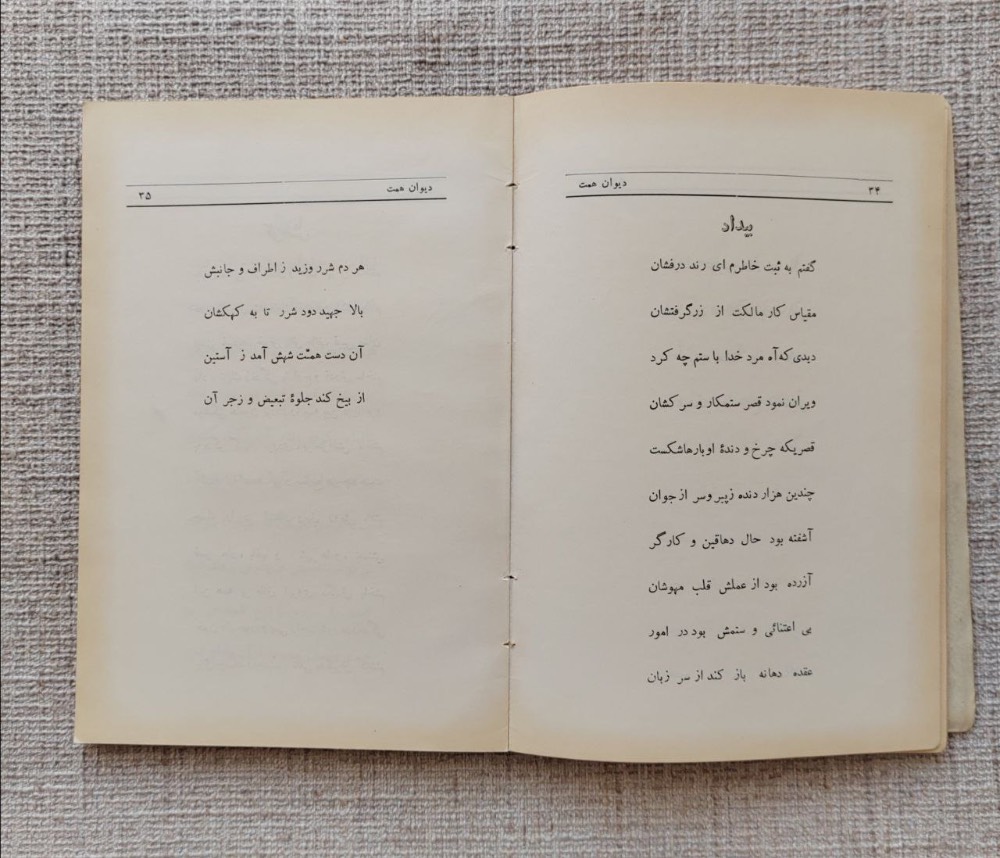 ۳۴ دیوان همت
بیدان
گفتم به ثبت خاطرم ای رند درفشان
مقیاس کار مالکت از زرگرفتشان
دیدی که آه مرد خدا با ستم چه کرد
ویران نمود قصر ستمکار و سرکشان
قصریکه چرخ و دندهٔ اوبارهاشکست
چندین هزار دنده زپیر وسر ازجوان
آشفته بود حال دهاقین و کارگر
آزرده بود از عملش قلب مهوشان
بی اعتنائی و ستمش بود در امور
عقده دهانه باز کند از سر زبان
دیوان همت ۳۵
هر دم شرر وزید ز اطراف و جانبش
بالا جهید دود شرر تا به کهکشان
آن دست همتت شهش آمد ز آستین
از بیخ کند جلوهٔ تبعیض و زجر آن